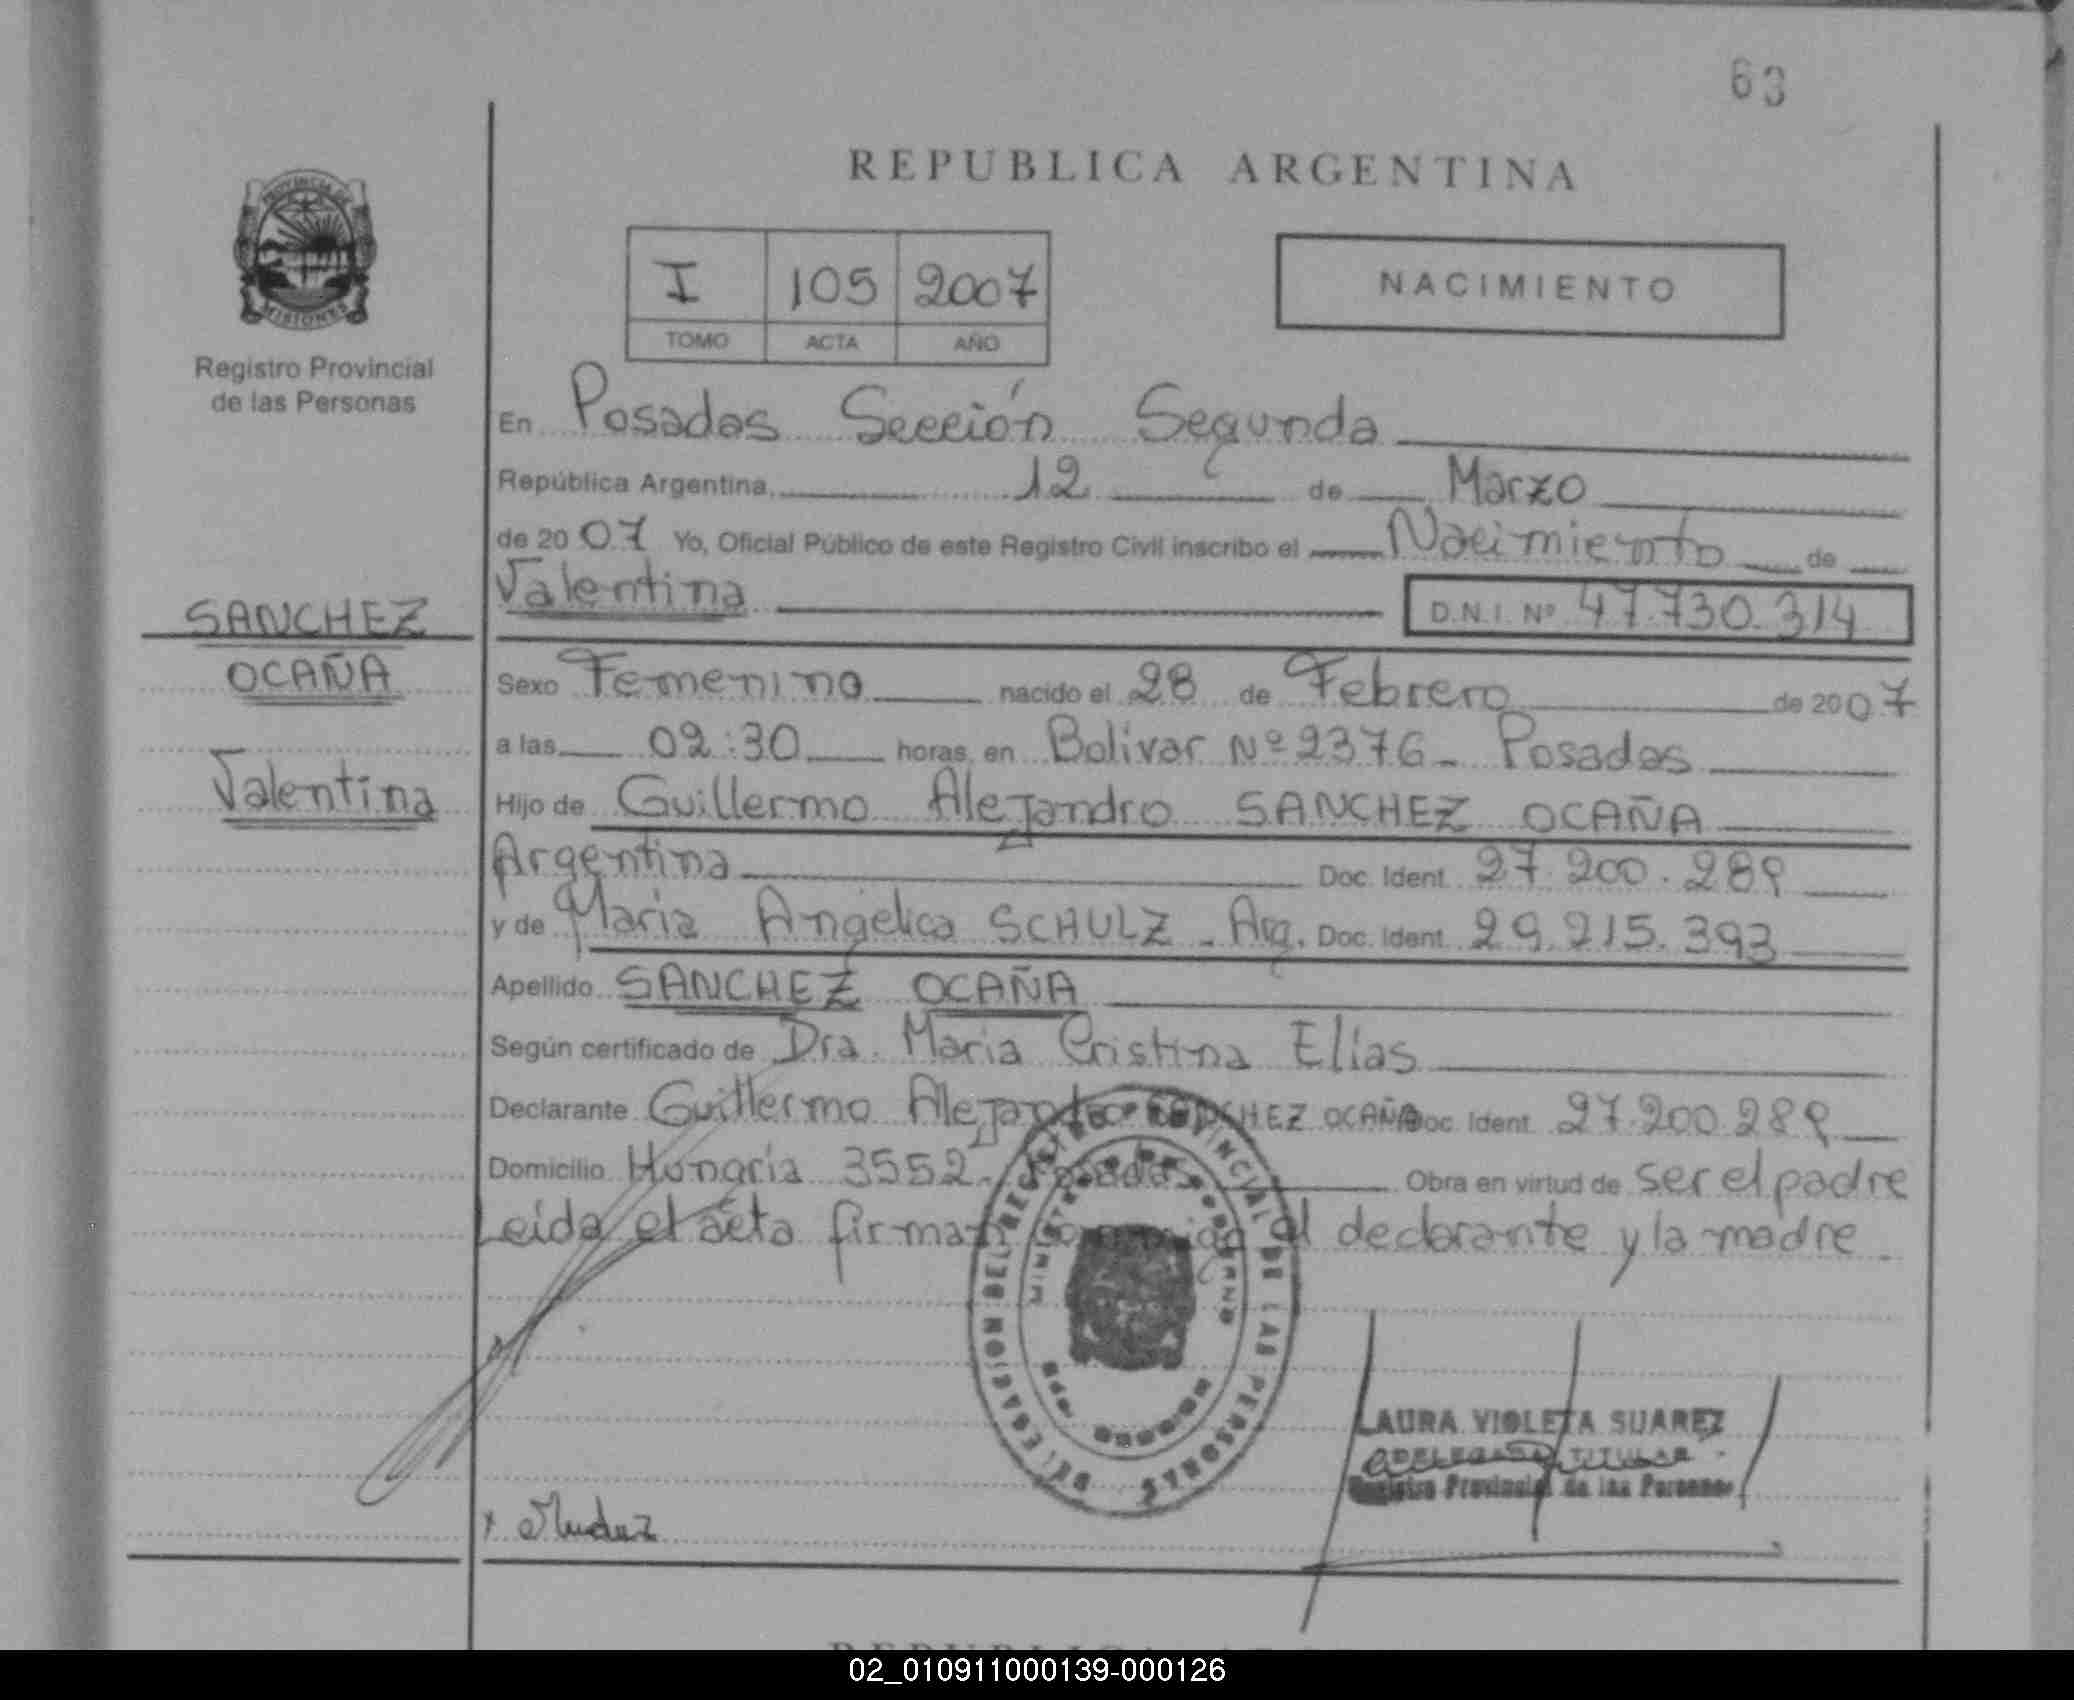 63
REPUBLICA ARGENTINA
PROVINCIA DE
MISIONES
I 105 2007
TOMO ACTA AÑO
NACIMIENTO
Registro Provincial
de las Personas
En Posadas Sección Segunda
República Argentina, 12 de Marzo
de 2007 Yo, Oficial Público de este Registro Civil inscribo el Nacimiento de
Valentina D.N.I. Nº 47.730.314
SANCHEZ
OCAÑA
Valentina
Sexo Femenino nacido el 28 de Febrero de 2007
a las 02:30 horas, en Bolivar Nº 2376 - Posadas
Hijo de Guillermo Alejandro SANCHEZ OCAÑA
Argentina Doc. Ident. 27.200.289
y de Maria Angélica SCHULZ - Arg. Doc. Ident. 29.215.393
Apellido SANCHEZ OCAÑA
Según certificado de Dra. Maria Cristina Elías
Declarante Guillermo Alejandro SANCHEZ OCAÑA Doc. Ident. 27.200.289
Domicilio Hungría 3552 - Posadas Obra en virtud de ser el padre
Leida el acta firman conmigo el declarante y la madre
REGISTRO PROVINCIAL DE LAS PERSONAS
DELEGACION
LAURA VIOLETA SUAREZ
DELEGADA TITULAR
Registro Provincial de las Personas
02_010911000139-000126